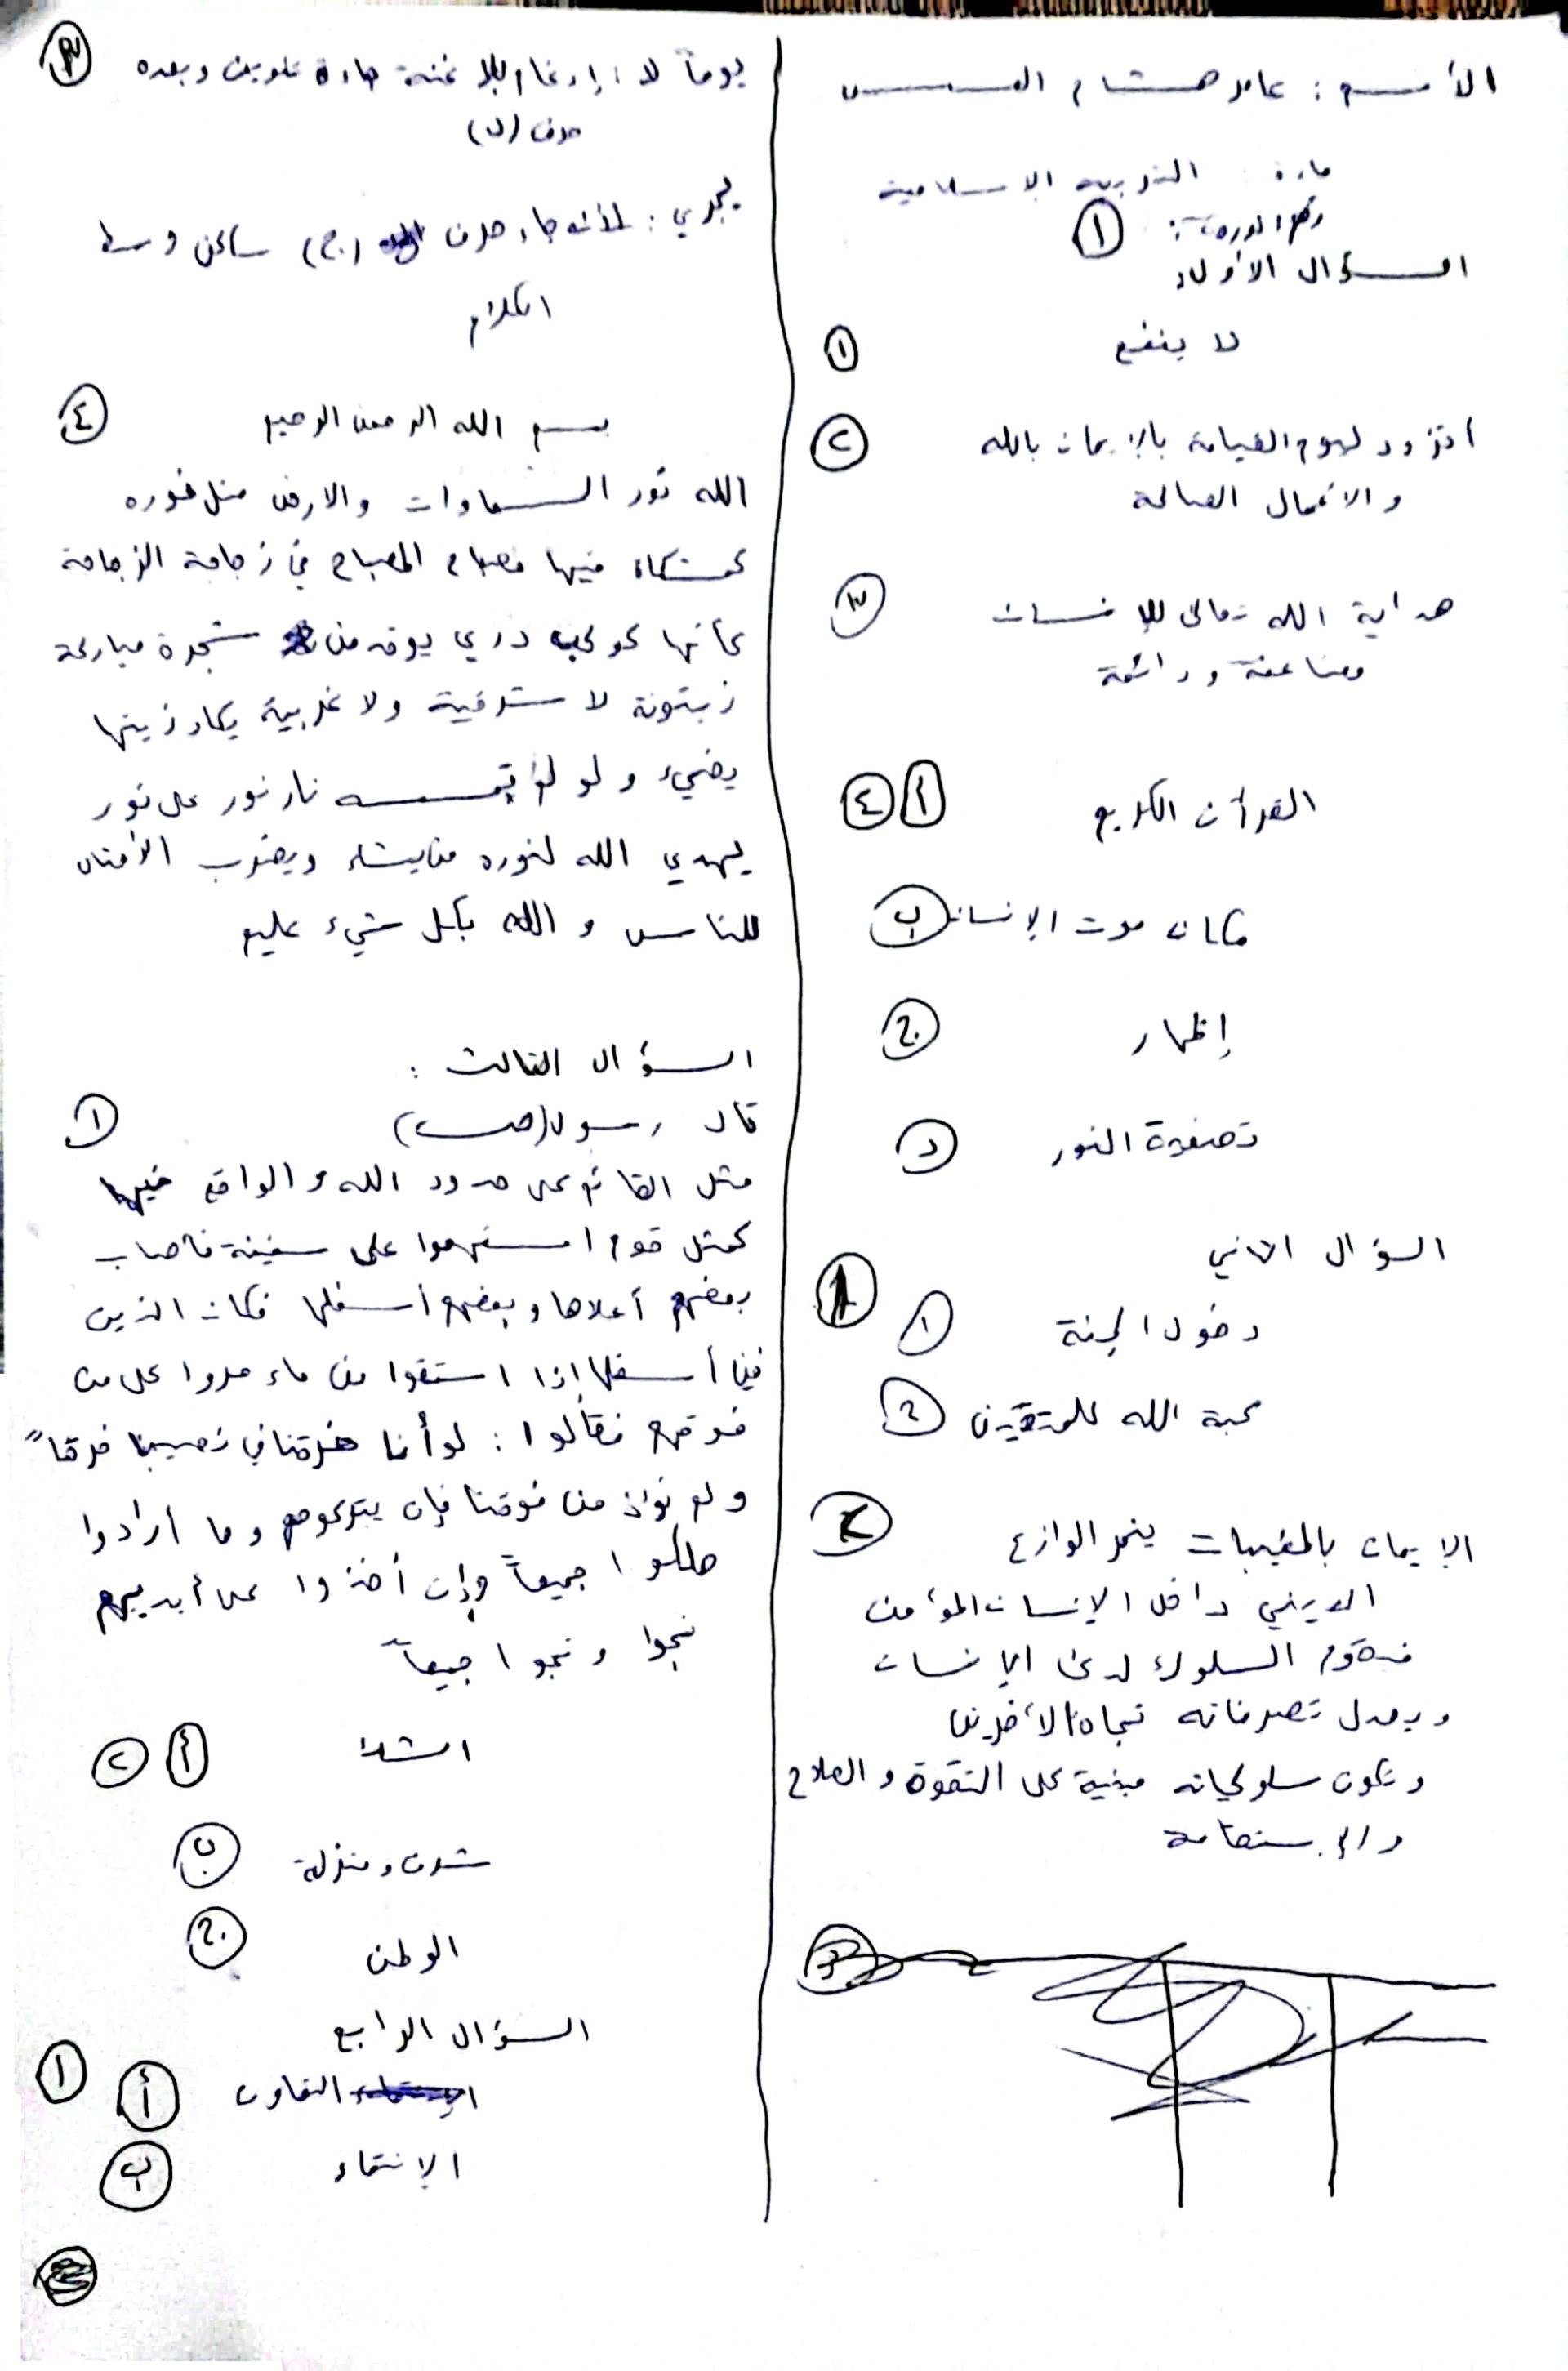 الأسم : عامر هشام
مادة : التربية الإسلامية
رقم الدورة : ①
السؤال الأول :
① لا ينفع
② أتزود ليوم القيامة بالإيمان بالله
والاعمال الصالحة
③ هداية الله تعالى للإنسان
مضاعفة ودائمة
④ أ القرآن الكريم
ب مكان موت الإنسان
ج إظهار
د تصغرة النور
السؤال الثاني
1 ① دخول الجنة
② محبة الله للمتقين
2 الإيمان بالمغيبات ينمي الوازع
الديني داخل الإنسان المؤمن
فيقوم السلوك لدى الإنسان
ويعدل تصرفاته تجاه الأخرين
وتكون سلوكياته مبنية على التقوة والصلاح
والإستقامة
③ يوماً لا : إدغام بلا غنة جاءة تنوين وبعده
حرف (ل)
يجري : لأنه جاء حرف (ج) ساكن وسط
الكلام
④ بسم الله الرحمن الرحيم
الله نور السماوات والارض مثل نوره
كمشكاة فيها مصباح المصباح في زجاجة الزجاجة
كأنها كوكب دري يوقد من شجرة مباركة
زيتونة لا شرقية ولا غربية يكاد زيتها
يضيء ولو لم تمسسه نار نور على نور
يهدي الله لنوره من يشاء ويضرب الأمثال
للناس والله بكل شيء عليم
السؤال الثالث :
① قال رسول (ص)
مثل القائم على حدود الله والواقع فيها
كمثل قوم استهموا على سفينة فأصاب
بعضهم أعلاها وبعضهم أسفلها فكان الذين
في أسفلها إذا استقوا من ماء مروا على من
فوقهم فقالوا : لو أنا خرقنا في نصيبنا خرقاً
ولم نؤذ من فوقنا فإن يتركوهم وما أرادوا
هلكوا جميعاً وإن أخذوا على أيديهم
نجوا ونجوا جميعاً
② أ
ب شرف ومنزلة
ج الوطن
السؤال الرابع
① أ التعاون
ب الإنتماء